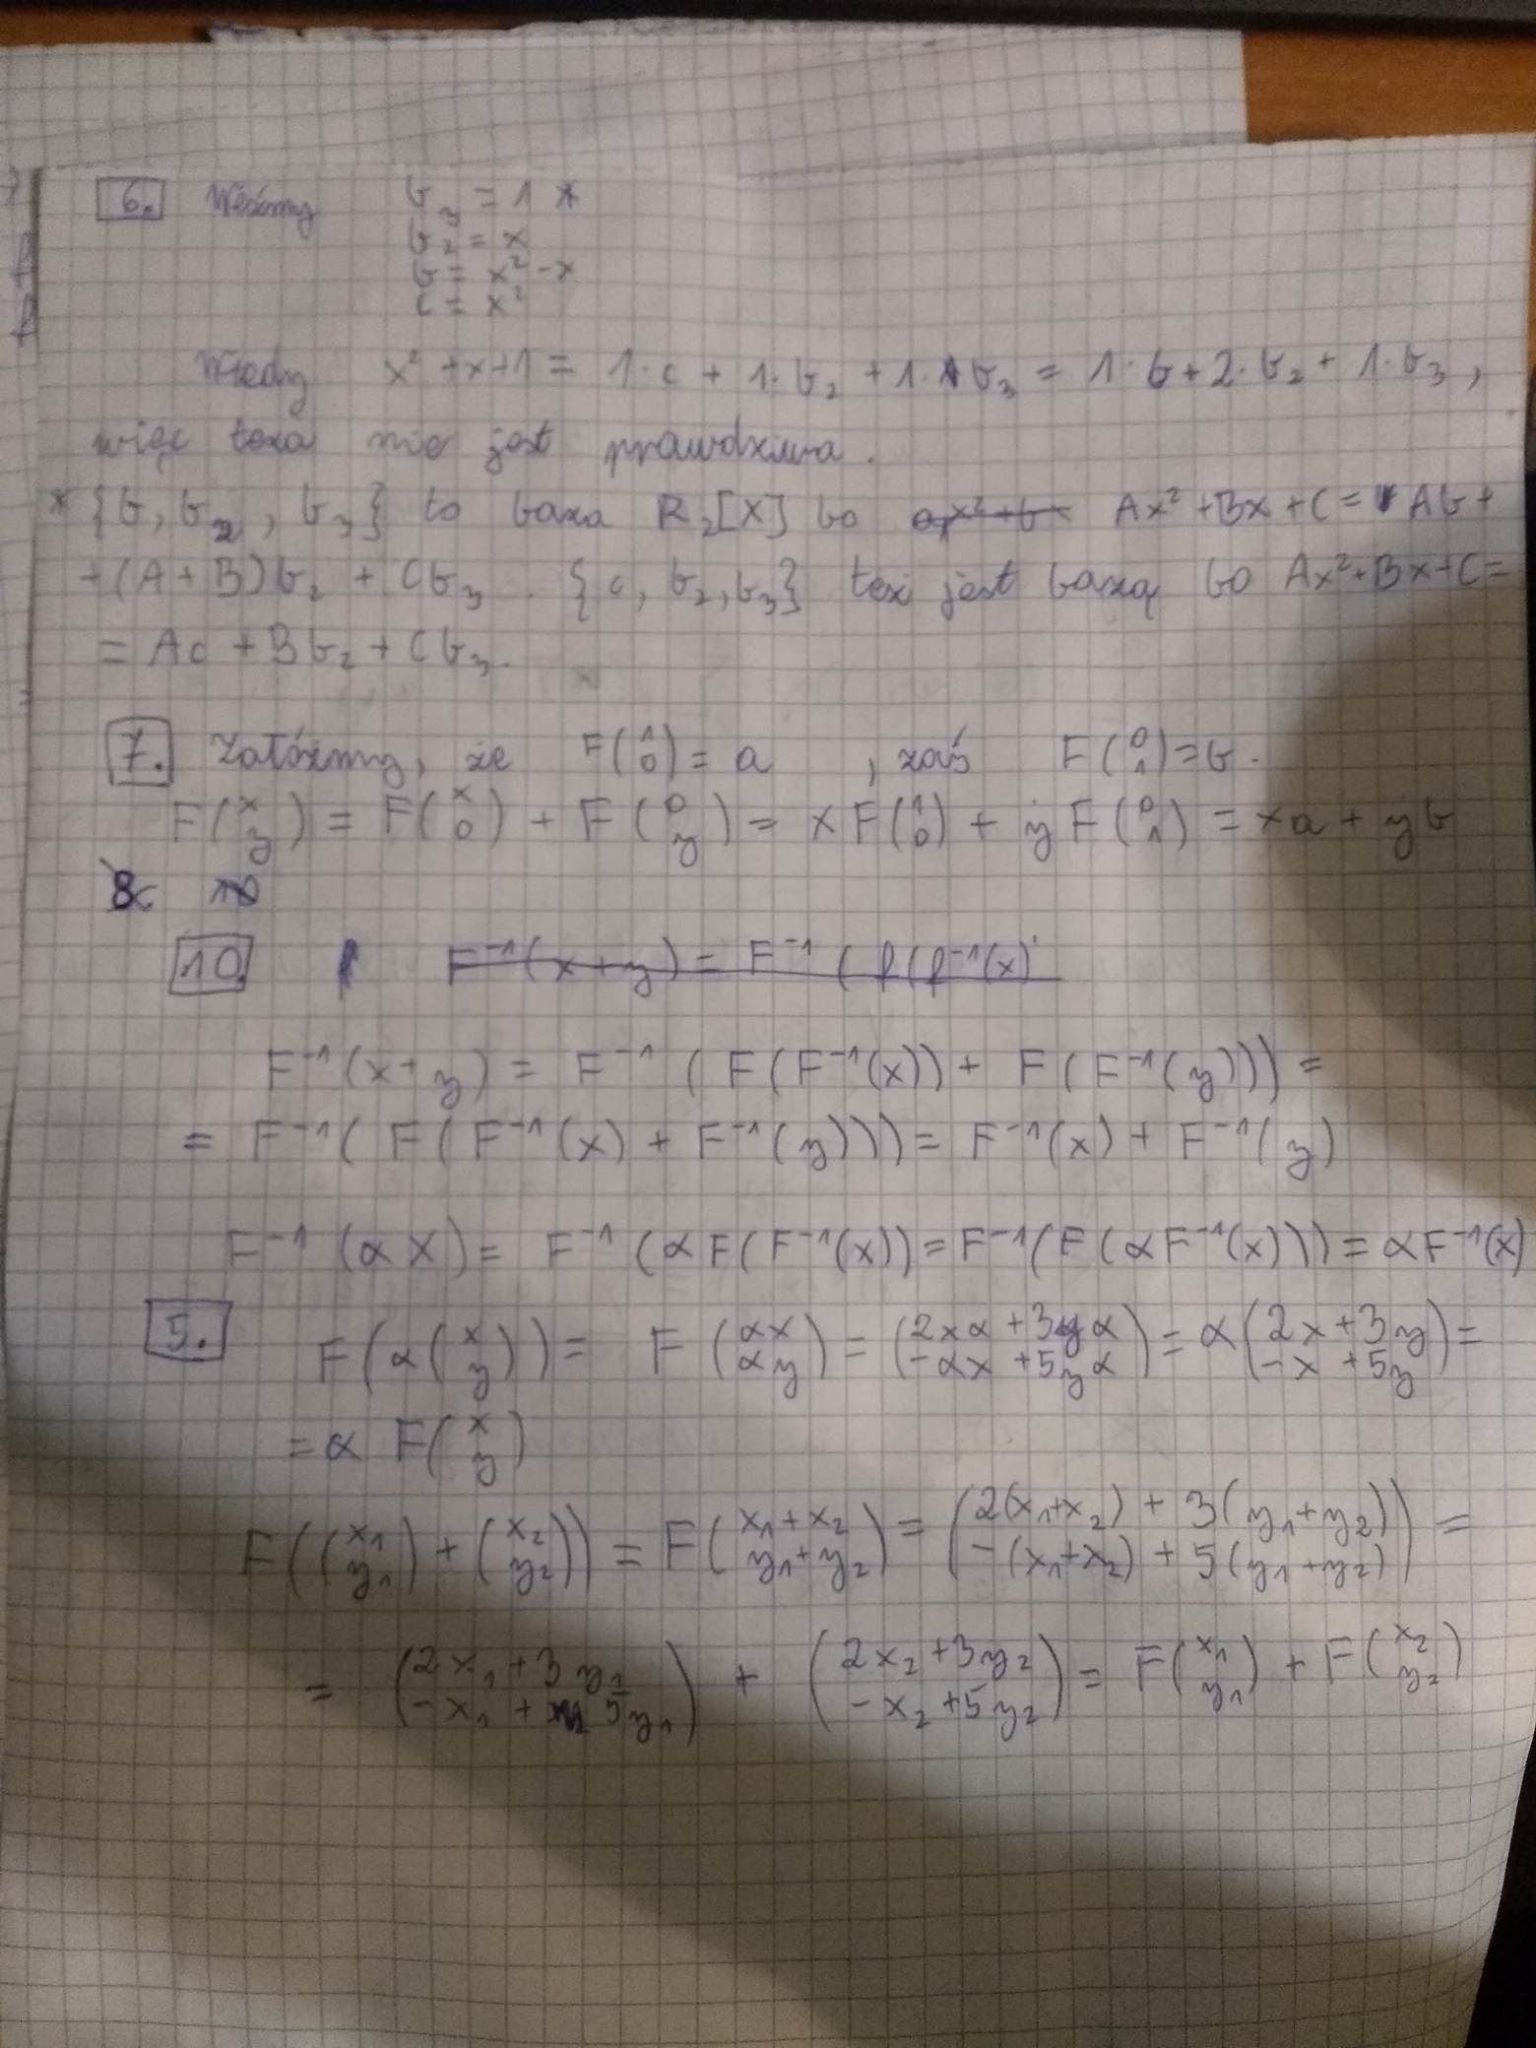 6. Weźmy b₃ = 1 *
b₂ = x
b = x² - x
c = x²
Wtedy x² + x + 1 = 1·c + 1·b₂ + 1·b₃ = 1·b + 2·b₂ + 1·b₃,
więc teza nie jest prawdziwa.
* {b, b₂, b₃} to baza R₂[X] bo Ax² + Bx + C = Ab +
+ (A + B)b₂ + Cb₃. {c, b₂, b₃} też jest bazą bo Ax² + Bx + C =
= Ac + Bb₂ + Cb₃.
7. Załóżmy, że F(1 0) = a, zaś F(0 1) = b.
F(x y) = F(x 0) + F(0 y) = xF(1 0) + yF(0 1) = xa + yb
8.
10. F⁻¹(x + y) = F⁻¹(f(f⁻¹(x)
F⁻¹(x + y) = F⁻¹(F(F⁻¹(x)) + F(F⁻¹(y))) =
= F⁻¹(F(F⁻¹(x) + F⁻¹(y))) = F⁻¹(x) + F⁻¹(y)
F⁻¹(αX) = F⁻¹(αF(F⁻¹(x)) = F⁻¹(F(αF⁻¹(x))) = αF⁻¹(x)
5. F(α(x y)) = F(αx αy) = (2xα + 3yα -αx + 5yα) = α(2x + 3y -x + 5y) =
= α F(x y)
F((x₁ y₁) + (x₂ y₂)) = F(x₁ + x₂ y₁ + y₂) = (2(x₁ + x₂) + 3(y₁ + y₂) -(x₁ + x₂) + 5(y₁ + y₂)) =
= (2x₁ + 3y₁ -x₁ + 5y₁) + (2x₂ + 3y₂ -x₂ + 5y₂) = F(x₁ y₁) + F(x₂ y₂)